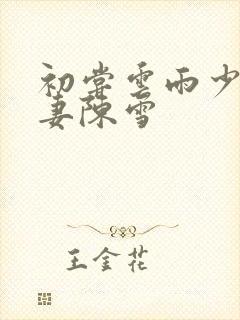 初尝雲雨少
妻陳雪
王金花